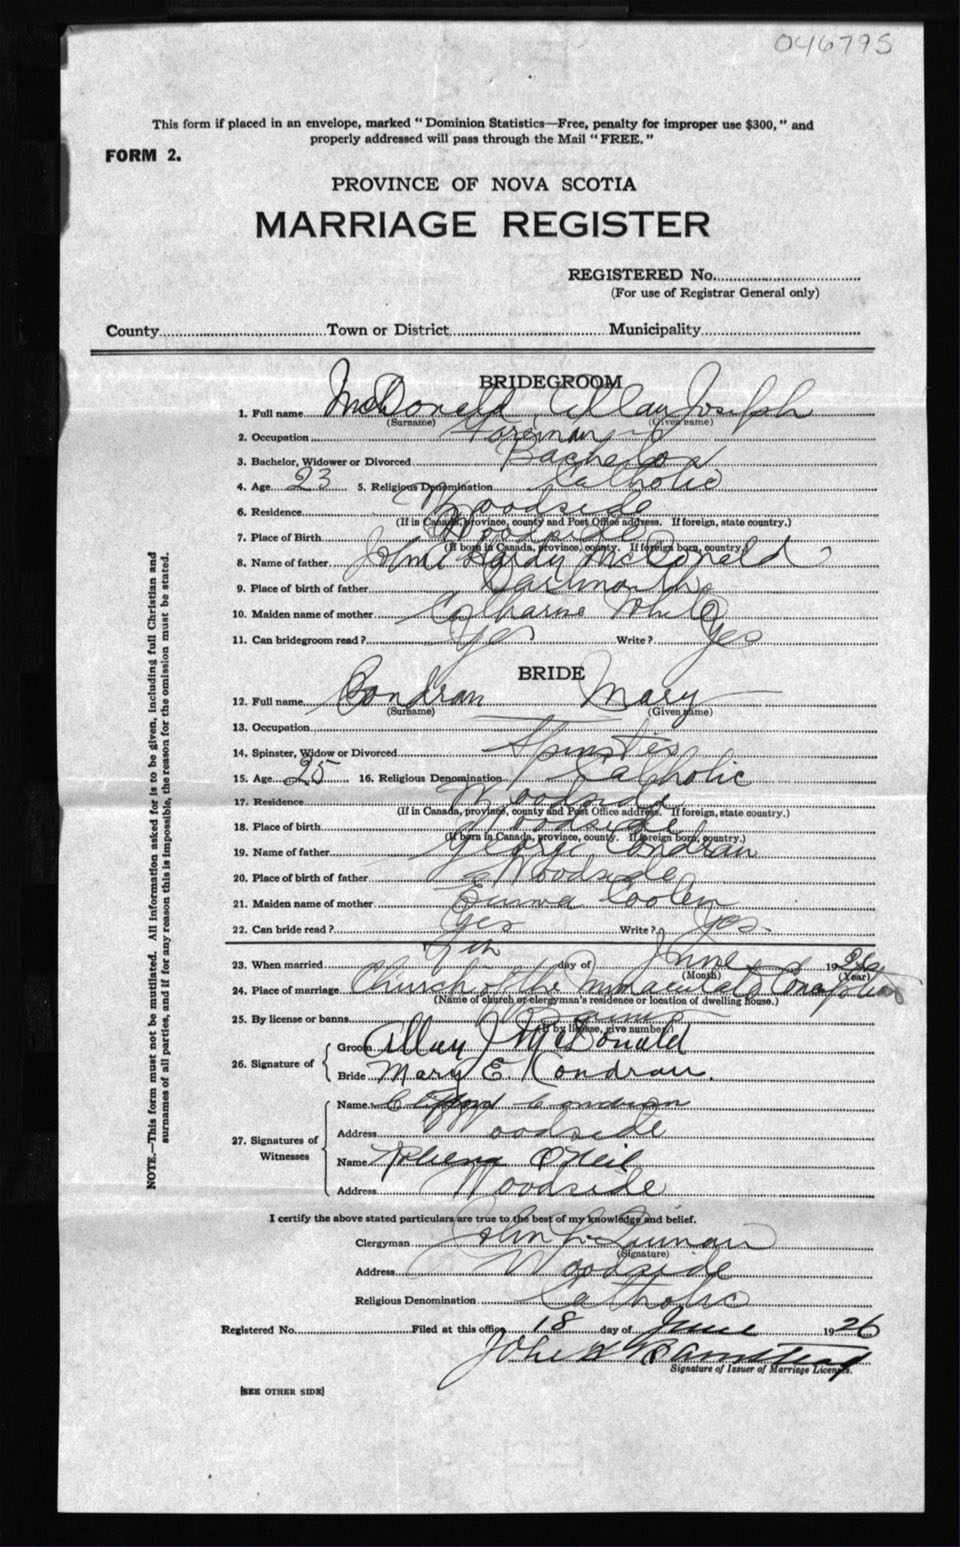 046795
This form if placed in an envelope, marked "Dominion Statistics—Free, penalty for improper use $300," and
properly addressed will pass through the Mail "FREE."
FORM 2.
PROVINCE OF NOVA SCOTIA
MARRIAGE REGISTER
REGISTERED No.
(For use of Registrar General only)
County Town or District Municipality
BRIDEGROOM
1. Full name McDonald Allan Joseph
(Surname) (Given name)
2. Occupation Foreman
3. Bachelor, Widower or Divorced Bachelor
4. Age 23 5. Religious Denomination Catholic
6. Residence Woodside
(If in Canada, province, county and Post Office address. If foreign, state country.)
7. Place of Birth Woodside
(If born in Canada, province, county. If foreign born, country)
8. Name of father John Hardy McDonald
9. Place of birth of father Dartmouth
10. Maiden name of mother Catharine White
11. Can bridegroom read? Yes Write? Yes
BRIDE
12. Full name Condran Mary
(Surname) (Given name)
13. Occupation
14. Spinster, Widow or Divorced Spinster
15. Age 25 16. Religious Denomination Catholic
17. Residence Woodside
(If in Canada, province, county and Post Office address. If foreign, state country.)
18. Place of birth Woodside
(If born in Canada, province, county. If foreign born, country.)
19. Name of father George Condran
20. Place of birth of father Woodside
21. Maiden name of mother Emma Coolen
22. Can bride read? Yes Write? Yes.
23. When married 9th day of June 1926
(Month) (Year)
24. Place of marriage Church of the Immaculate Conception
(Name of church or clergyman's residence or location of dwelling house.)
25. By license or banns Banns
(If by license, give number)
26. Signature of
Groom Allan J McDonald
Bride Mary E. Condran.
27. Signatures of
Witnesses
Name Condran
Address Woodside
Name O'Neil
Address Woodside
I certify the above stated particulars are true to the best of my knowledge and belief.
Clergyman John L Quinan
(Signature)
Address Woodside
Religious Denomination Catholic
Registered No. Filed at this office 18 day of June 1926
John
Signature of Issuer of Marriage Licenses.
[SEE OTHER SIDE]
NOTE.—This form must not be mutilated. All information asked for is to be given, including full Christian and
surnames of all parties, and if for any reason this is impossible, the reason for the omission must be stated.